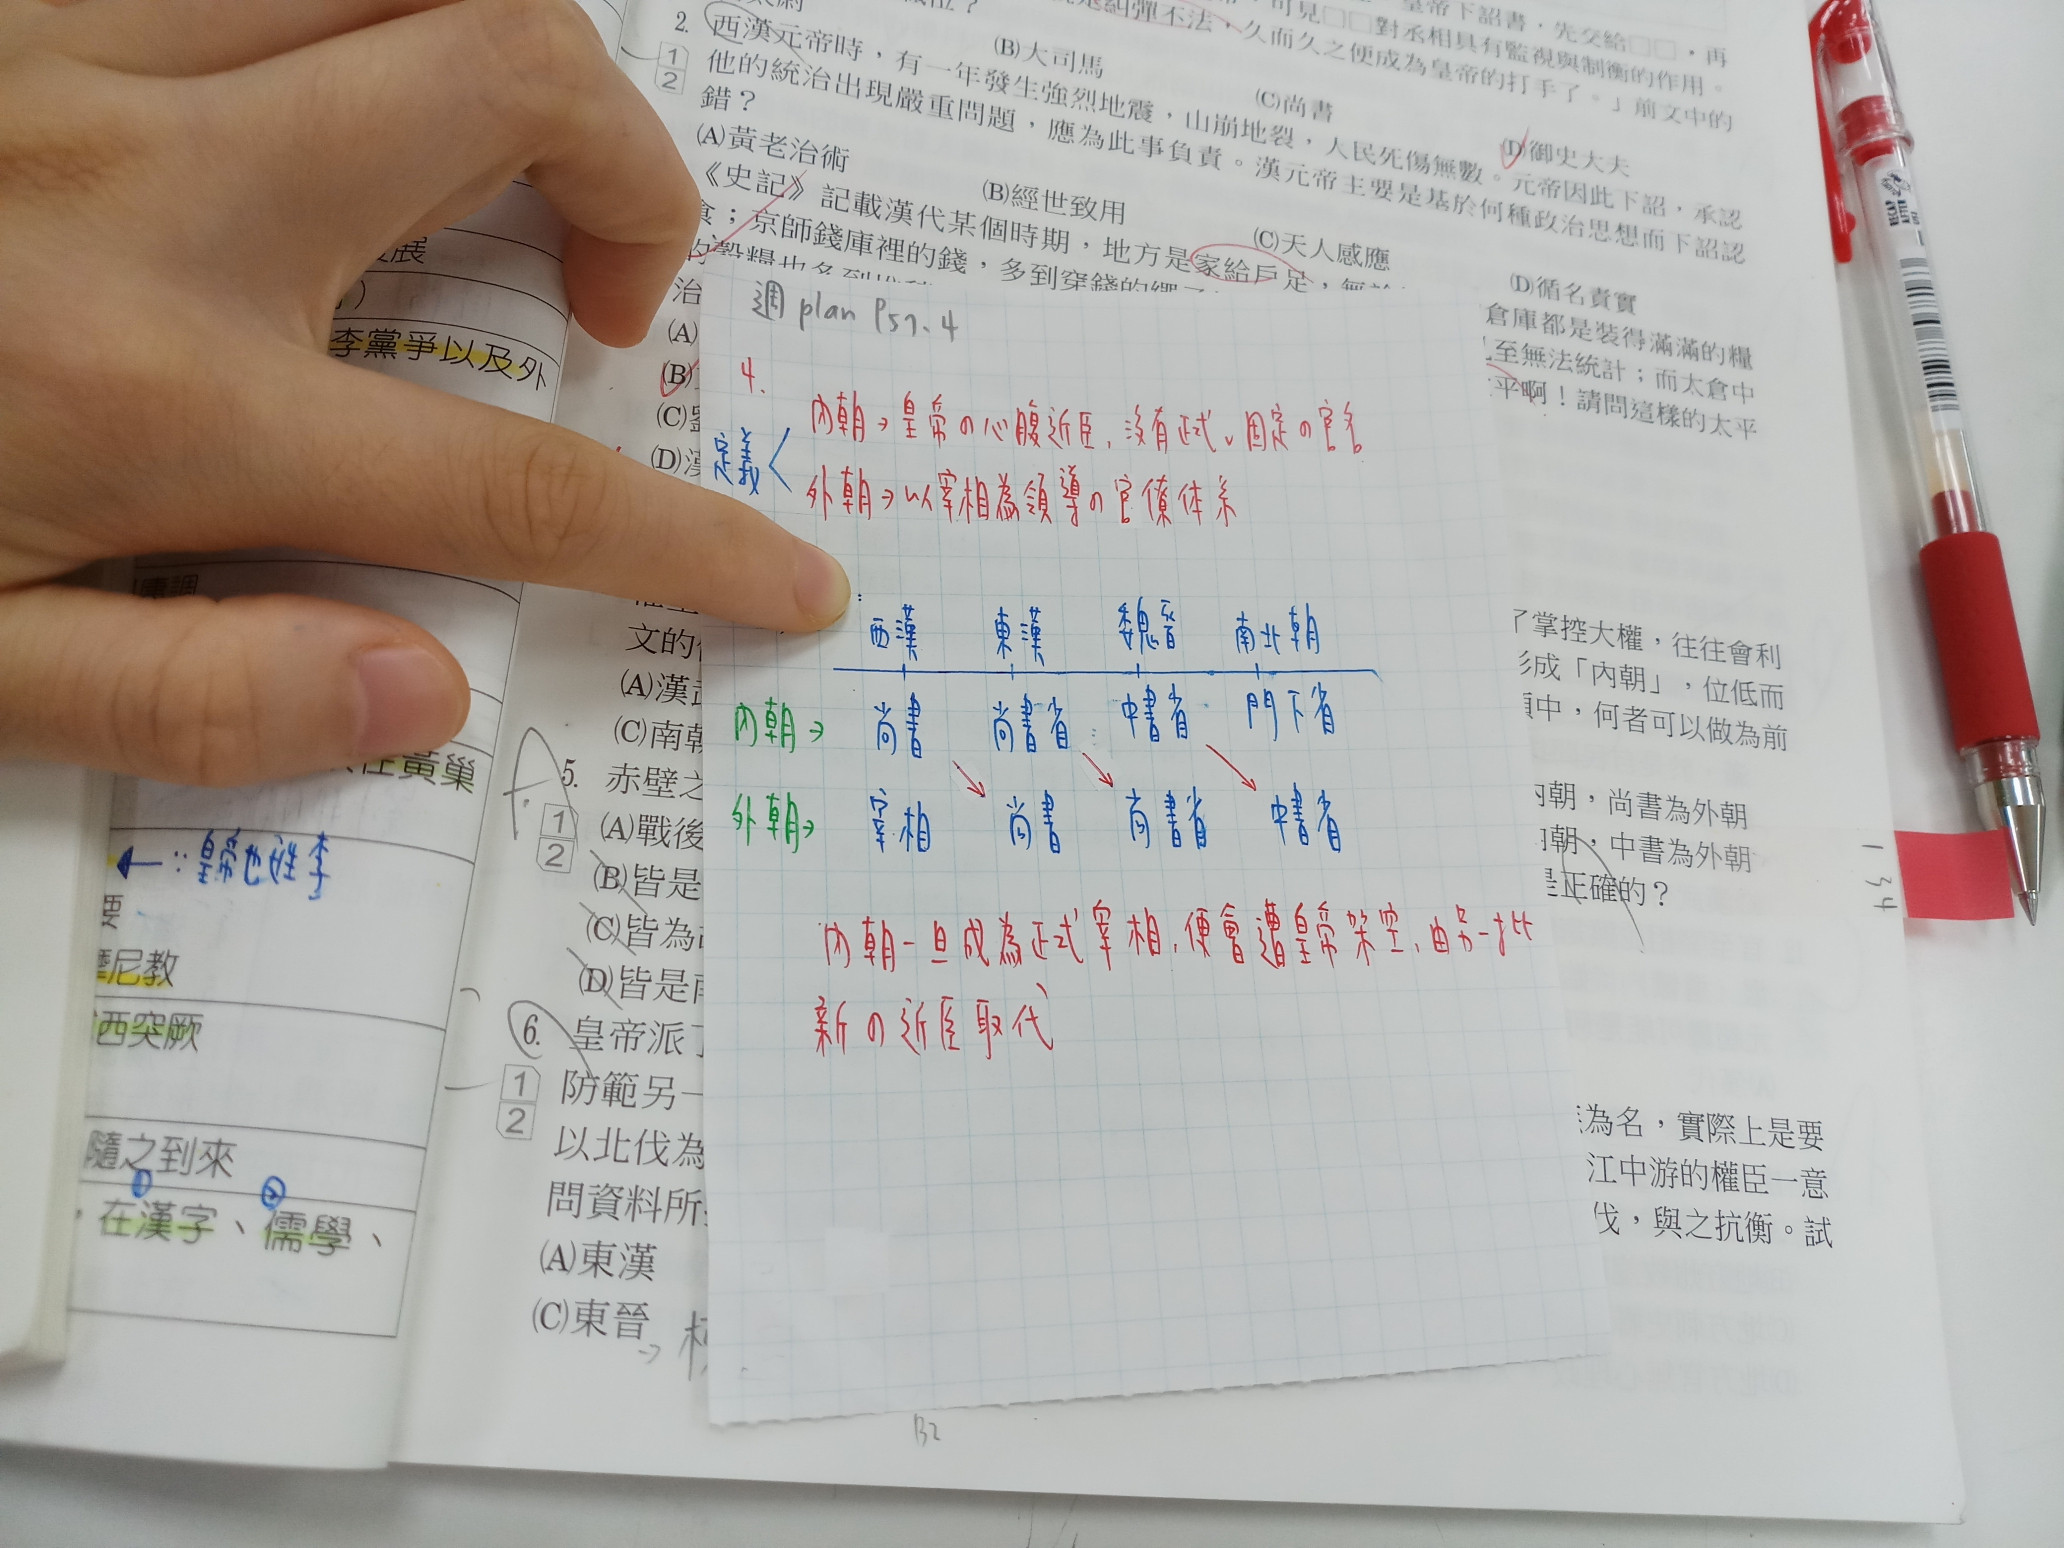 皇帝下詔書，先交給□□，再
可見□□對丞相具有監視與制衡的作用。
糾彈不法，久而久之便成為皇帝的打手了。」前文中的
(B)大司馬
(C)尚書
(D)御史大夫
2. 西漢元帝時，有一年發生強烈地震，山崩地裂，人民死傷無數。元帝因此下詔，承認
1
2
他的統治出現嚴重問題，應為此事負責。漢元帝主要是基於何種政治思想而下詔認
錯？
(A)黃老治術
(B)經世致用
(C)天人感應
(D)循名責實
《史記》記載漢代某個時期，地方是家給戶足，
倉庫都是裝得滿滿的糧
食；京師錢庫裡的錢，多到穿錢的繩子
至無法統計；而太倉中
的穀糧也多到
太平啊！請問這樣的太平
治
(A)
(B)
(C)
(D)漢
週 plan P57. 4
4.
定義
內朝→皇帝の心腹近臣,沒有正式、固定の官名
外朝→以宰相為領導の官僚体系
西漢 東漢 魏晉 南北朝
內朝→ 尚書 尚書省 中書省 門下省
外朝→ 宰相 尚書 尚書省 中書省
內朝一旦成為正式宰相,便會遭皇帝架空,由另一批
新の近臣取代
了掌控大權，往往會利
形成「內朝」，位低而
文的
項中，何者可以做為前
(A)漢武
內朝，尚書為外朝
(C)南朝
內朝，中書為外朝
5. 赤壁之
是正確的？
1
2
(A)戰後
(B)皆是
(C)皆為
(D)皆是
6. 皇帝派
為名，實際上是要
1
2
防範另一
江中游的權臣一意
以北伐為
伐，與之抗衡。試
問資料所
(A)東漢
(C)東晉
B2
134
發展
李黨爭以及外
黃巢
←∵皇帝也姓李
要
摩尼教
西突厥
隨之到來
① ②
，在漢字、儒學、